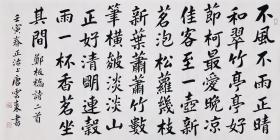 不風不雨正晴
和翠竹亭亭好
節柯最愛晚涼
佳客至一壺新
茗泡松蘿幾枝
新葉蕭蕭竹數
筆橫皴淡淡山
正好清明連穀
雨一杯香茗坐
其間 鄭板橋詩一首
壬寅春